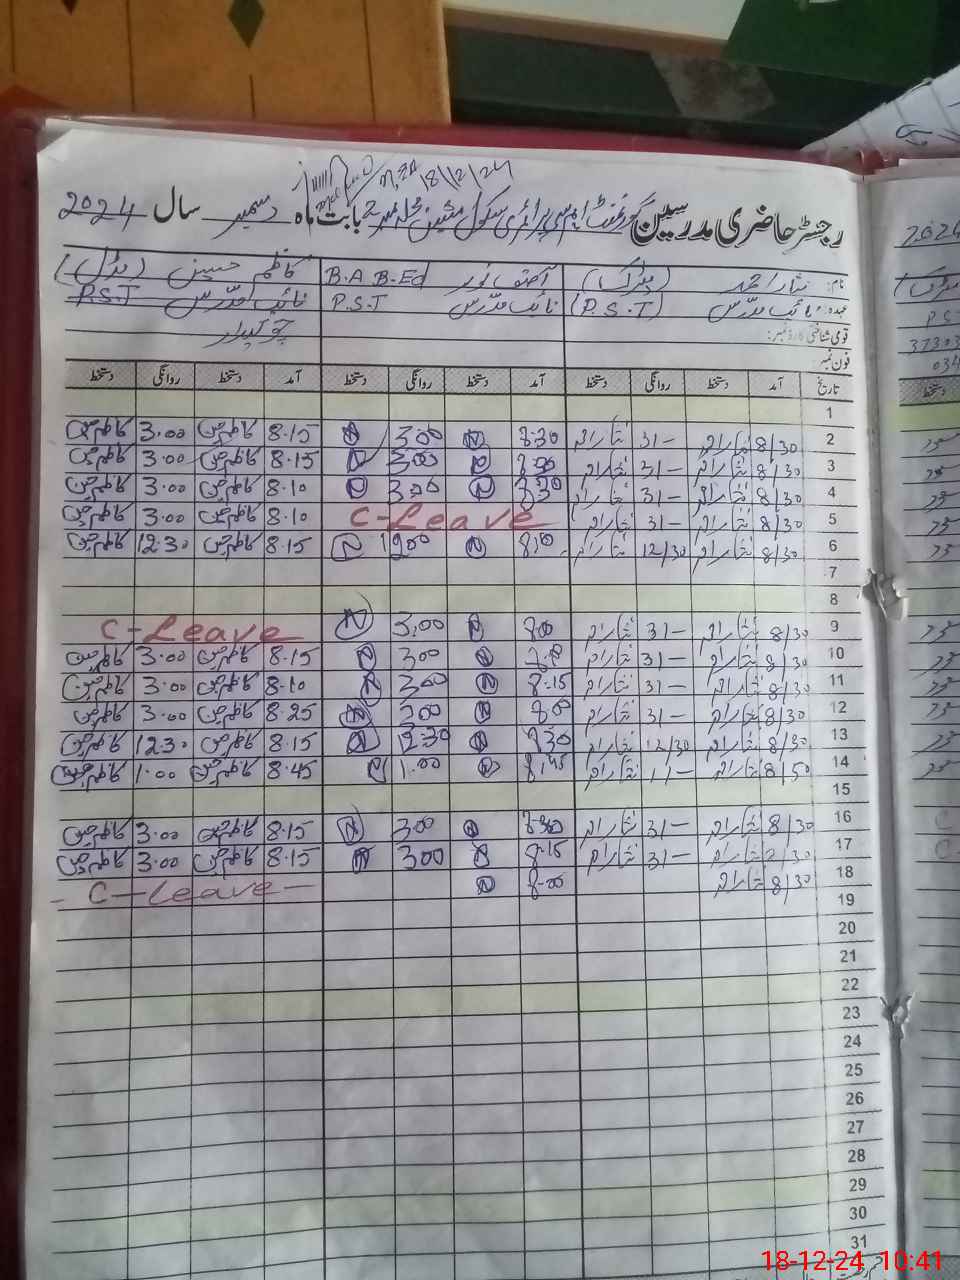 18/12/24
رجسٹر حاضری مدرسین گورنمنٹ ایم سی پرائمری سکول مشین محلہ نمبر 2 بابت ماہ دسمبر سال 2024
نام: نثار احمد (میٹرک) آصف نور B.A B-Ed کاظم حسین (مڈل)
عہدہ: نائب مدرس (P.S.T) نائب مدرس P.S.T نائب مدرس P.S.T
قومی شناختی کارڈ نمبر: چوکیدار
فون نمبر
تاریخ آمد دستخط روانگی دستخط آمد دستخط روانگی دستخط آمد دستخط روانگی دستخط
1
2 8/30 نثار احمد 3/- نثار احمد 8.30 3.00 8.15 کاظم حسین 3.00 کاظم حسین
3 8/30 نثار احمد 3/- نثار احمد 3.00 8.15 کاظم حسین 3.00 کاظم حسین
4 8/30 نثار احمد 3/- نثار احمد 8.30 3.00 8.10 کاظم حسین 3.00 کاظم حسین
5 8/30 نثار احمد 3/- نثار احمد C-Leave 8.10 کاظم حسین 3.00 کاظم حسین
6 8/30 نثار احمد 12/30 نثار احمد 8.15 کاظم حسین 12.30 کاظم حسین
7
8
9 8/30 نثار احمد 3/- نثار احمد 3.00 C-Leave
10 8/30 نثار احمد 3/- نثار احمد 3.00 8.15 کاظم حسین 3.00 کاظم حسین
11 8/30 نثار احمد 3/- نثار احمد 8.15 3.00 8.10 کاظم حسین 3.00 کاظم حسین
12 8/30 نثار احمد 3/- نثار احمد 3.00 8.25 کاظم حسین 3.00 کاظم حسین
13 8/30 نثار احمد 12/30 نثار احمد 12.30 8.15 کاظم حسین 12.30 کاظم حسین
14 8/50 نثار احمد 1/- نثار احمد 8.45 1.00 8.45 کاظم حسین 1.00 کاظم حسین
15
16 8/30 نثار احمد 3/- نثار احمد 8.30 3.00 8.15 کاظم حسین 3.00 کاظم حسین
17 نثار احمد 3/- نثار احمد 8.15 3.00 8.15 کاظم حسین 3.00 کاظم حسین
18 8/30 نثار احمد 8.00 C-Leave
19
20
21
22
23
24
25
26
27
28
29
30
31
18-12-24 10:41